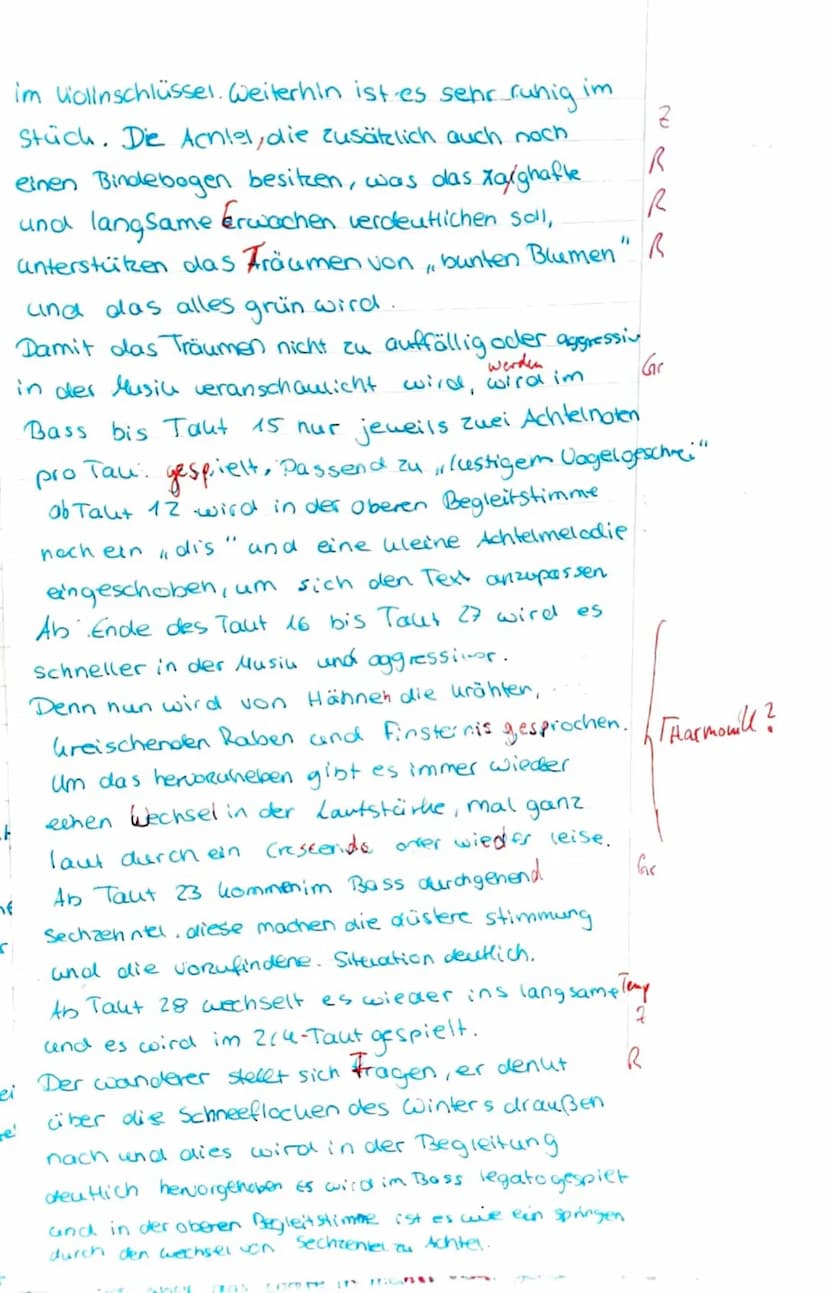 im Violinschlüssel. Weiterhin ist es sehr ruhig im
Stück. Die Achtel, die zusätzlich auch noch Z
einen Bindebogen besitzen, was das zaghafte R
und langsame Erwachen verdeutlichen soll, R
unterstützen das Träumen von „bunten Blumen" R
und das alles grün wird.
Damit das Träumen nicht zu auffällig oder aggressiv
in der Musik veranschaulicht wird, wird im Gr
werden
Bass bis Takt 15 nur jeweils zwei Achtelnoten
pro Takt gespielt. Passend zu „lustigem Vogelgeschrei"
ab Takt 12 wird in der oberen Begleitstimme
noch ein „dis" und eine kleine Achtelmelodie
eingeschoben, um sich den Text anzupassen
Ab Ende des Takt 16 bis Takt 27 wird es
schneller in der Musik und aggressiver.
Denn nun wird von Hähnen die krähten,
kreischenden Raben und Finsternis gesprochen. Harmonik?
Um das hervorzuheben gibt es immer wieder
einen Wechsel in der Lautstärke, mal ganz
laut durch ein Crescendo oder wieder leise.
Ab Takt 23 kommen im Bass durchgehend Gr
Sechzehntel, diese machen die düstere Stimmung
und die vorzufindene Situation deutlich.
Ab Takt 28 wechselt es wieder ins langsame Temp
und es wird im 2/4-Takt gespielt. ?
Der Wanderer stellt sich Fragen, er denkt R
über die Schneeflocken des Winters draußen
nach und dies wird in der Begleitung
deutlich hervorgehoben es wird im Bass legato gespielt
und in der oberen Begleitstimme ist es wie ein springen
durch den Wechsel von Sechzentel zu Achtel.